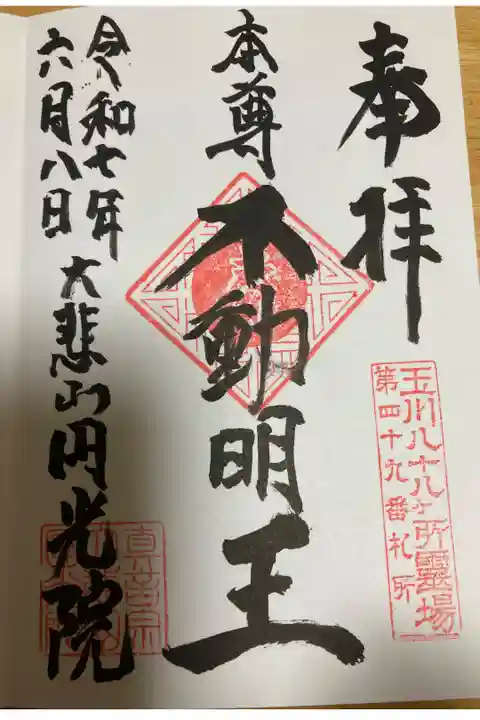 奉拝
玉川八十八ヶ所霊場
第四十九番札所
本尊 不動明王
令和七年
六月八日
大悲山円光院